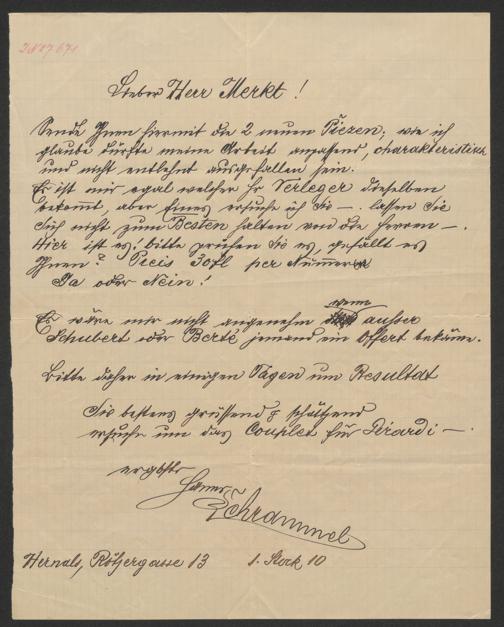 Lieber Herr Merkt!
Sende Ihnen hiermit die 2 neuen Piezen; wie ich
glaube dürfte meine Arbeit anpassend, charakteristisch
und nicht entlehnt ausgefallen sein.
Es ist mir egal welcher Hr Verleger dieselben
bekommt, aber Eines ersuche ich Sie —. lassen Sie
Sich nicht zum Besten halten von die Herren —.
Hier ist es! bitte prüfen Sie es, gefällt es
Ihnen? Preis 30fl per Nummer
Ja oder Nein!
wenn
Es wäre mir nicht angenehm ausser
Schubert oder Berté jemand ein Offert bekäme.
Bitte daher in einigen Tagen um Resultat
Sie bestens grüssend & schätzend
ersuche um das Couplet für Girardi —.
ergbstr
Hanns
Schrammel
Hernals, Rötzergasse 13 1. Stock 10